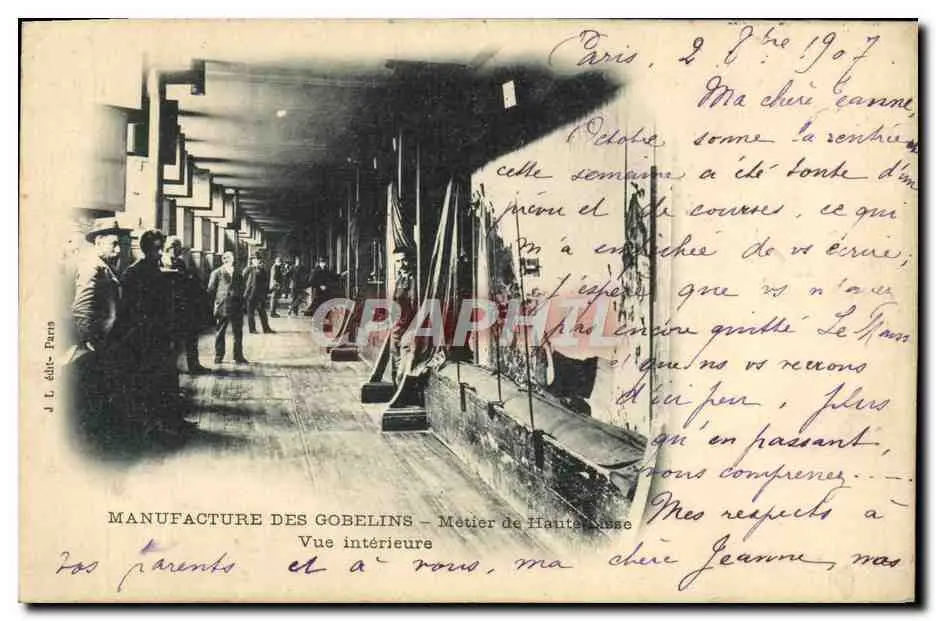 Paris, 2 8bre 1907
Ma chère Jeanne,
Octobre sonne la rentrée
cette semaine a été toute d'im
prévu et de courses, ce qui
m'a empêchée de vs écrire;
j'espère que vs n'avez
pas encore quitté Le Mans
et que ns vs reverrons
d'ici peu, plus
qu'en passant,
vous comprenez....
Mes respects à
vos parents et à vous, ma chère Jeanne, mes
J L édit- Paris
CPAPHIL
MANUFACTURE DES GOBELINS – Métier de Haute-Lisse
Vue intérieure